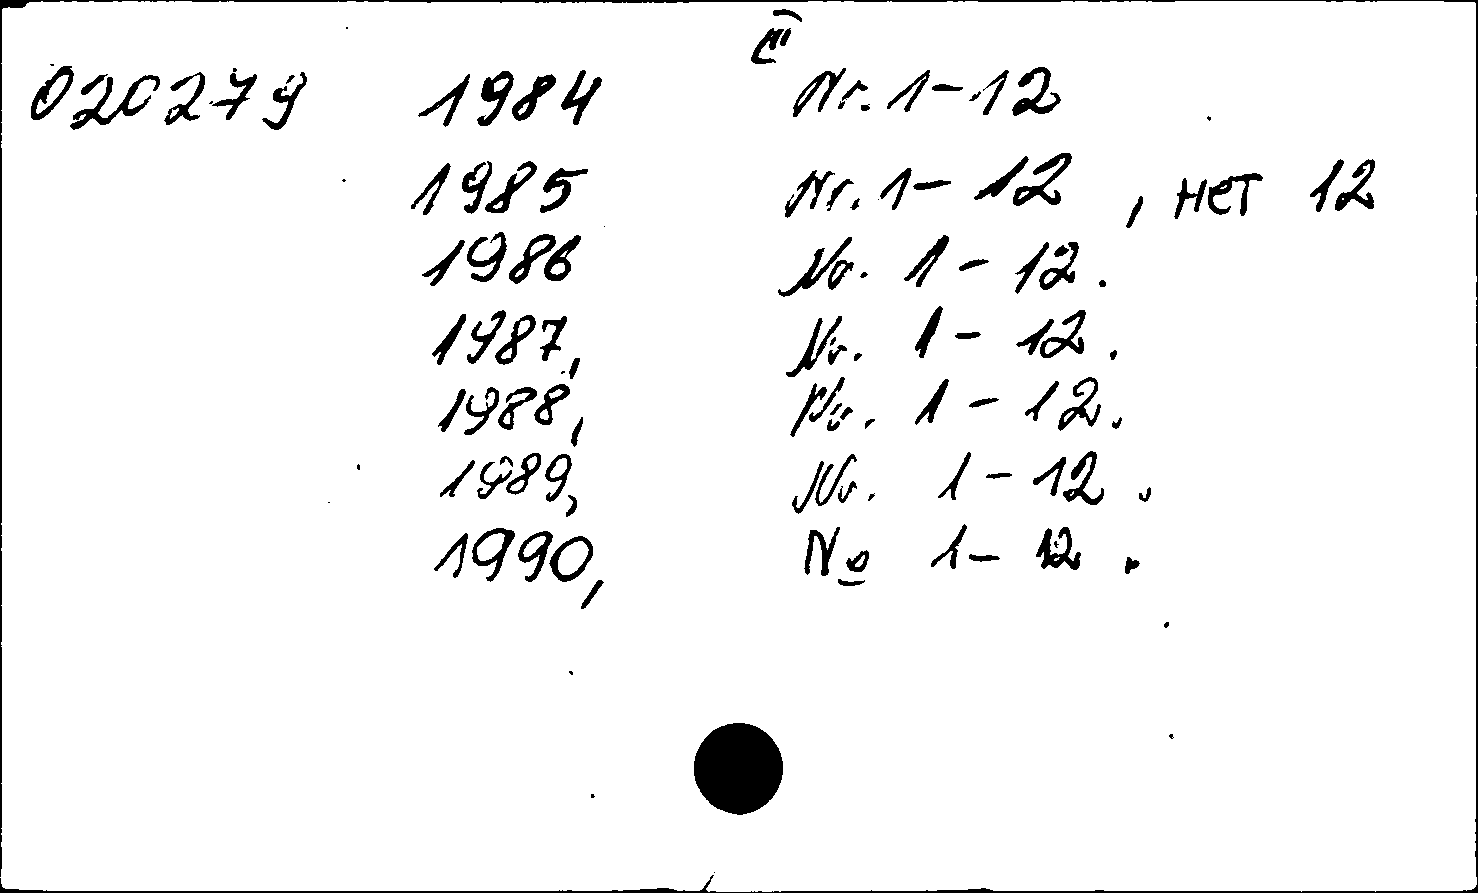 III
020279 1984 Nr. 1-12
1985 Nr. 1-12, нет 12
1986 Nr. 1-12.
1987, Nr. 1-12.
1988, Nr. 1-12.
1989, Nr. 1-12.
1990, № 1-12.